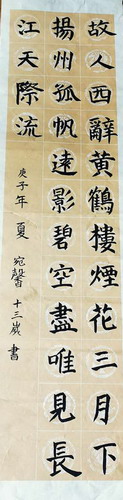 故人西辭黃鶴樓煙花三月下
揚州孤帆遠影碧空盡唯見長
江天際流
庚子年夏 宛馨 十三歲書